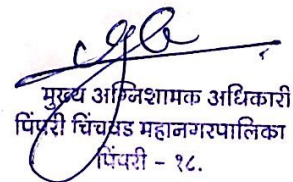 मुख्य अग्निशामक अधिकारी
पिंपरी चिंचवड महानगरपालिका
पिंपरी - १८.